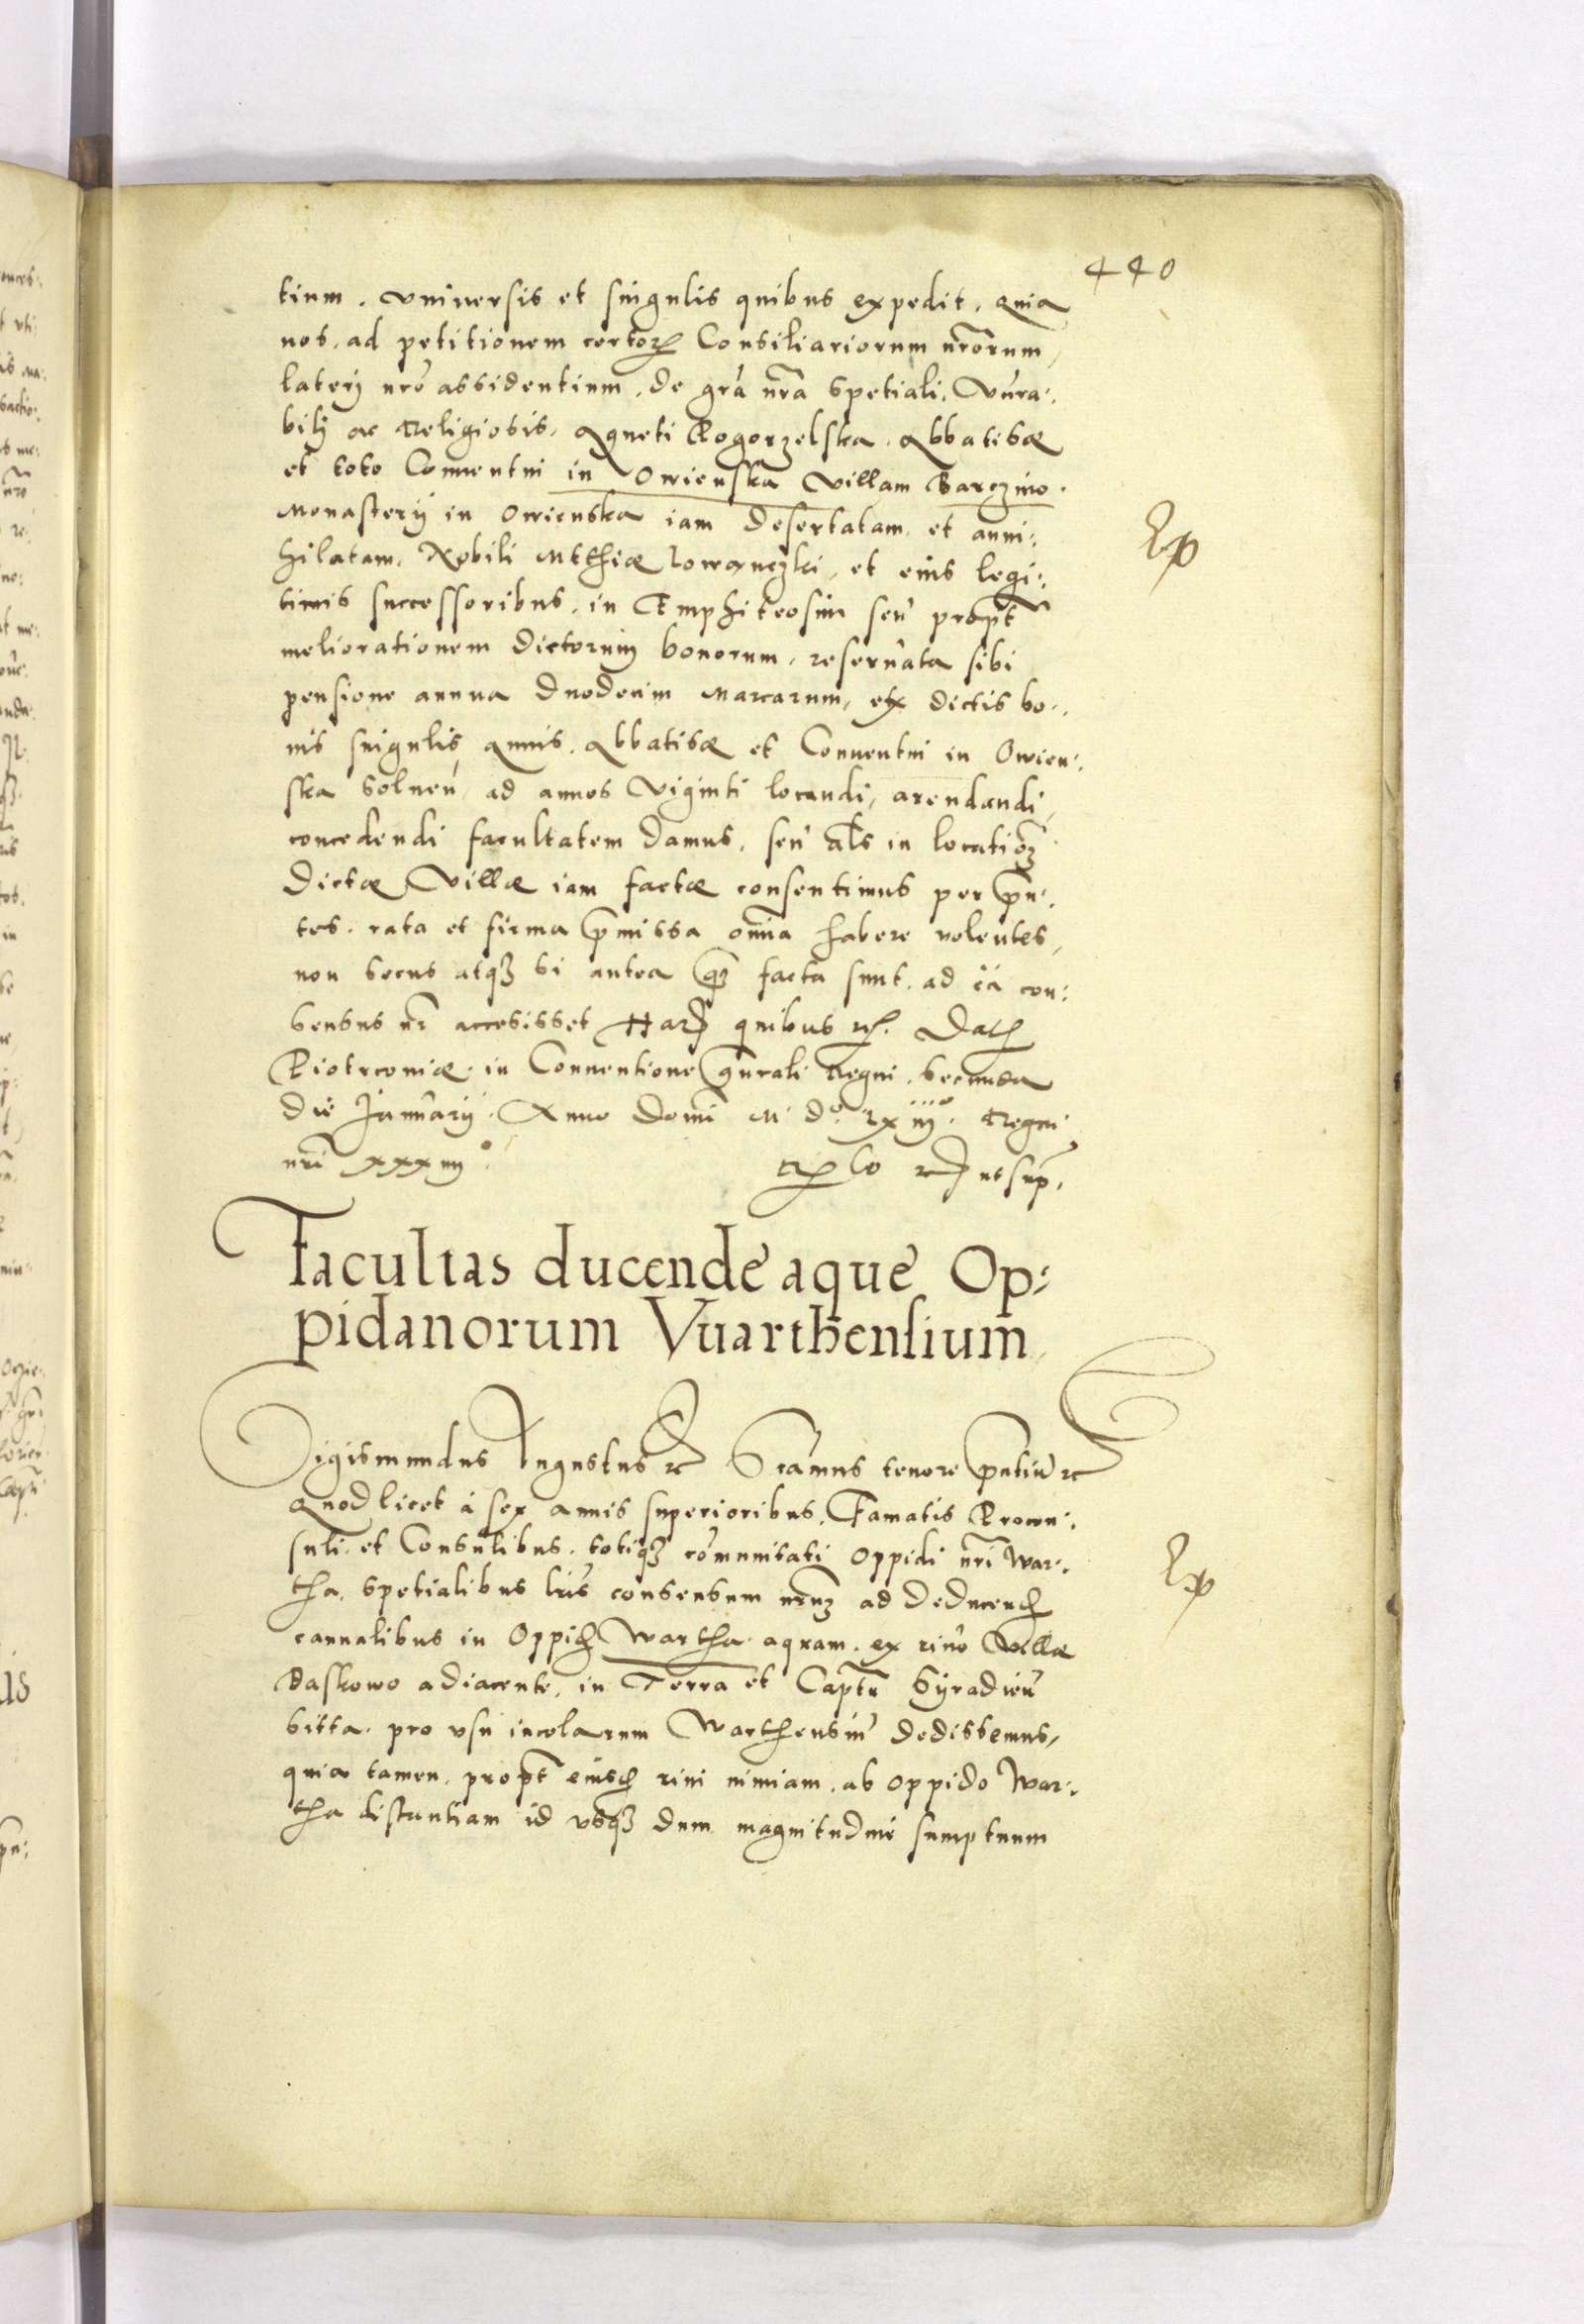 440
tium. vniuersis et singulis quibus expedit, quia
nos, ad petitionem certorꝝ Consiliariorum nrõrum,
laterj nrõ assidentium, de grã nrã spetiali, Vnera:
bilj ac Religiosis, Agneti Pogorzelska, Abbatisæ
et toto Conuentui in Owienska villam Barczino
Monasterij in Owienska iam desertatam, et anni:
hilatam, Nobili Mtthiæ, et eius legi:
timis successoribus, in Emphiteosim seu propt
meliorationem dictorum bonorum, reseruata sibi
pensione annua duodecim Marcarum, ex dictis bo:
nis singulis annis, Abbatisæ et Conuentui in Owien:
ska soluen, ad annos viginti locandi, arendandi,
concedendi facultatem damus, seu als in locationẽ
dictæ villæ iam factæ consentimus per pñ:
tes, rata et firma pmissa omnia habere volentes,
non secus atqꝫ si antea qꝫ facta sunt, ad ea con:
sensus nr accesisset Harꝫ quibus rꝭ. Datꝭ
Piotrcouiæ, in Conuentione gñrali Regni, secunda
die Januarij. Anno Domi M. D. lxiij. Regni
nri xxxiiij
Facultas ducende aque Op:
pidanorum Vuarthensium
Sigismundus Augustus rc Scamus tenore pntiũ rc
Quod licet à sex annis superioribus, Famatis Procon:
suli, et Consulibus, totiqꝫ cõmunitati oppidi nri War:
tha, spetialibus lris consensum nrũ ad deducendꝭ
cannalibus in Oppidꝭ Wartha aquam, ex riuo villæ
Daskowo adiacente, in Terra et Captu Syradieñ
sitta, pro vsu incolarum Warthensiũ dedissemus,
quia tamen, propt eiusdꝭ riui nimiam, ab oppido War:
tha distantiam id vsqꝫ dum magnitudine sumptuum